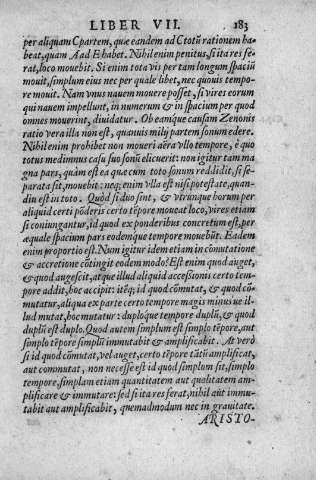 LIBER VII. 183
per aliquam C partem, quæ eandem ad C totũ rationem ha-
beat, quam A ad E habet. Nihil enim penitus, si ita res fe-
rat, loco mouebit. Si enim tota vis per tam longum spaciũ
mouit, simplum eius nec per quale libet, nec quouis tempo-
re mouit. Nam vnus nauem mouere posset, si vires eorum
qui nauem impellunt, in numerum & in spacium per quod
omnes mouerint, diuidatur. Ob eamque causam Zenonis
ratio vera illa non est, quamuis milij partem sonum edere.
Nihil enim prohibet non moueri aëra vllo tempore, è quo
totus medimnus casu suo sonũ elicuerit: non igitur tam ma
gna pars, quàm est ea qua cum toto sonum reddidit, si se-
parata sit, mouebit: neq; enim vlla est nisi potestate, quan-
diu est in toto. Quòd si duo sint, & vtrunque horum per
aliquid certi põderis certo tẽpore moueat loco, vires etiam
si coniungantur, id quod ex ponderibus concretum est, per
æquale spacium pars eodemque tempore mouebũt. Eadem
enim proportio est. Num igitur idem etiam in cõmutatione
& accretione cõtingit eodem modo? Est enim quod auget,
& quod augescit, atque illud aliquid accessionis certo tem-
pore addit, hoc accipit: itẽq; id quod cõmutat, & quod cõ-
mutatur, aliqua ex parte certo tempore magis minus ue il-
lud mutat, hoc mutatur: duploque tempore duplũ, & quod
duplũ est duplo. Quod autem simplum est simplo tẽpore, aut
simplo tẽpore simplũ immutabit & amplificabit. At verò
si id quod cõmutat, vel auget, certo tẽpore tãtũ amplificat,
aut commutat, non necesse est id quod simplum sit, simplo
tempore, simplam etiam quantitatem aut qualitatem am-
plificare & immutare: sed si ita res ferat, nihil aut immu-
tabit aut amplificabit, quemadmodum nec in grauitate.
ARISTO-